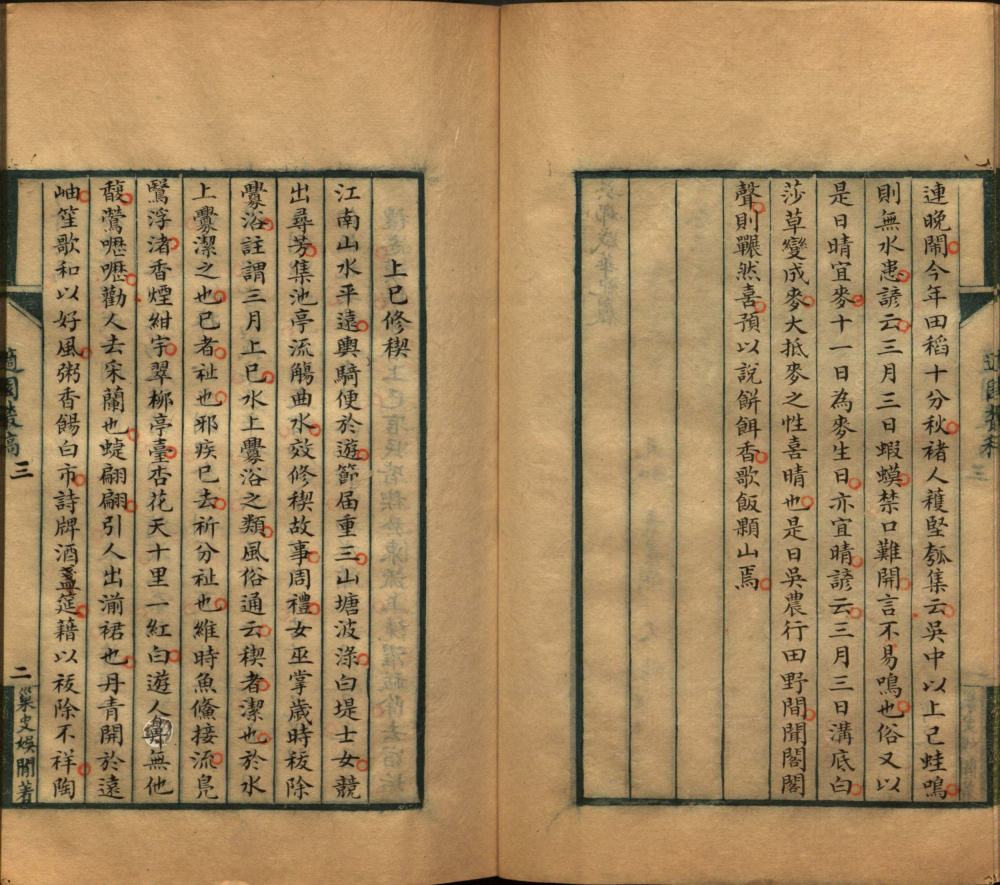 連晚鬧今年田稻十分秋褚人穫堅瓠集云吳中以上巳蛙鳴
則無水患諺云三月三日蝦蟆禁口難開言不易鳴也俗又以
是日晴宜麥十一日為麥生日亦宜晴諺云三月三日溝底白
莎草變成麥大抵麥之性喜晴也是日吳農行田野間聞閣閣
聲則囅然喜預以說餅餌香歌飯顆山焉
上巳修禊
江南山水平遠輿騎便於遊節屆重三山塘波淥白堤士女競
出尋芳集池亭流觴曲水效修禊故事周禮女巫掌歲時祓除
釁浴註謂三月上巳水上釁浴之類風俗通云禊者潔也於水
上釁潔之也巳者祉也邪疾已去祈分祉也維時魚儵接流鳧
鷖浮渚香煙紺宇翠柳亭臺杏花天十里一紅白遊人鼻無他
馥鶯嚦嚦勸人去采蘭也蜨翩翩引人出湔裙也丹青開於遠
岫笙歌和以好風粥香餳白市詩牌酒盞筵藉以祓除不祥陶
適園叢稿 三
二 巢史娛閒著